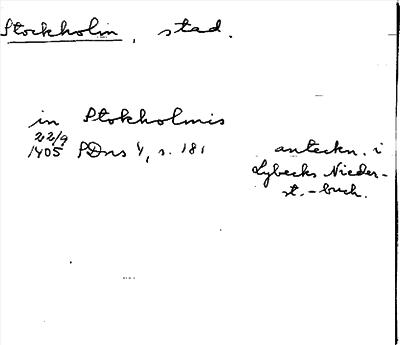 Stockholm, stad.
in Stokholmis
22/9
1405 SDns 1, s. 181
anteckn. i
Lybecks Nieder-
st.-buch.